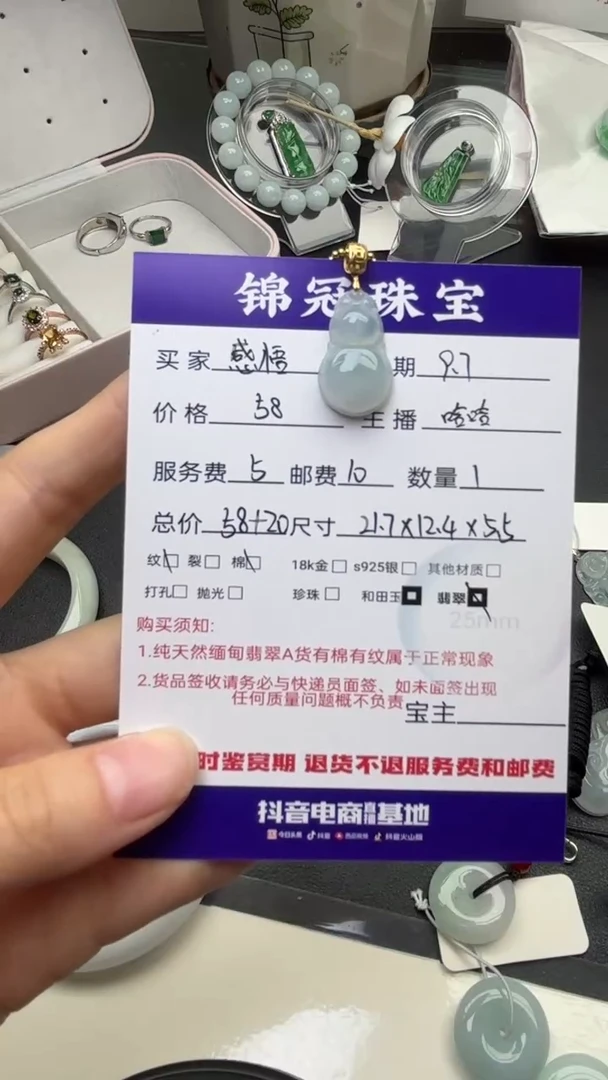 锦冠珠宝
买家 感悟 期 9.7
价格 58 主播 哈哈
服务费 5 邮费 10 数量 1
总价 58+20 尺寸 21.7×12.4×5.5
纹 裂 棉 18k金 s925银 其他材质
打孔 抛光 珍珠 和田玉 翡翠
25mm
购买须知:
1.纯天然缅甸翡翠A货有棉有纹属于正常现象
2.货品签收请务必与快递员面签、如未面签出现
任何质量问题概不负责
宝主
时鉴赏期 退货不退服务费和邮费
抖音电商直播基地
今日头条 抖音 西瓜视频 抖音火山版